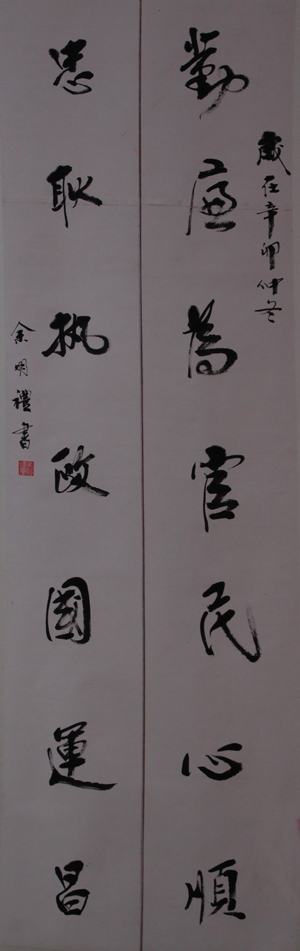 歲在辛卯仲冬
勤廉為官民心順
忠耿执政國運昌
余明禮書